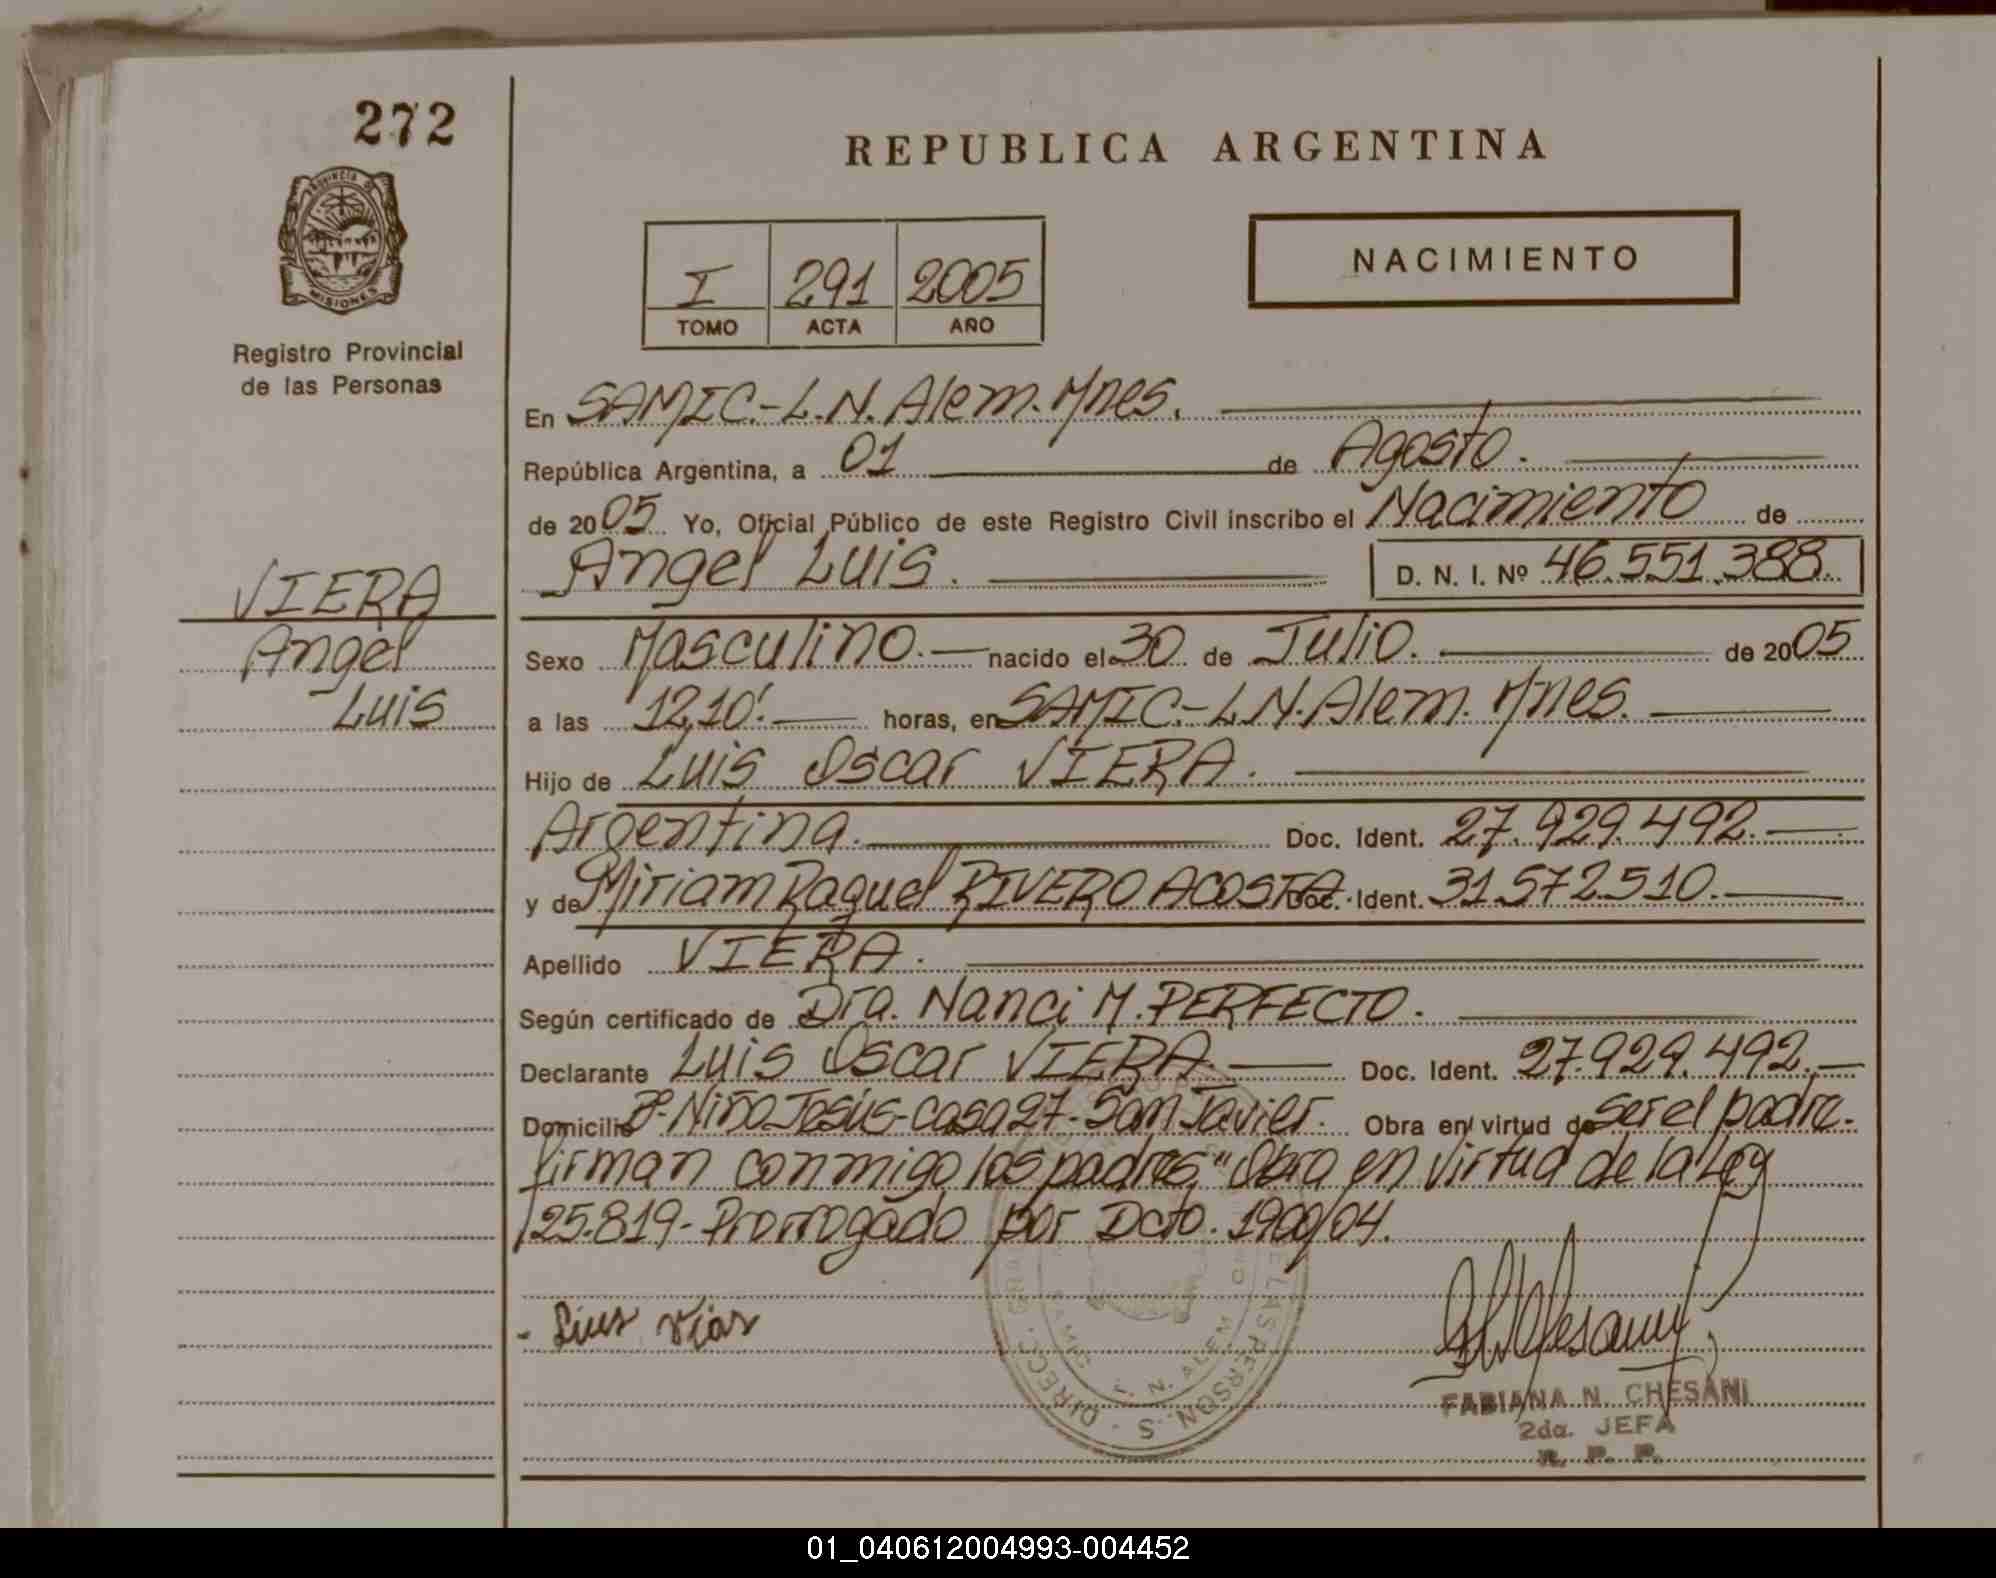 272
REPUBLICA ARGENTINA
PROVINCIA DE
MISIONES
Registro Provincial
de las Personas
I 291 2005
TOMO ACTA AÑO
NACIMIENTO
En SAMIC.-L.N. Alem. Mnes.
República Argentina, a 01 de Agosto.
de 2005 Yo, Oficial Público de este Registro Civil inscribo el Nacimiento de
Angel Luis. D. N. I. Nº 46.551.388.
VIERA
Angel
Luis
Sexo Masculino.- nacido el 30 de Julio. de 2005
a las 12,10'.- horas, en SAMIC.-L.N. Alem. Mnes.
Hijo de Luis Oscar VIERA.
Argentina. Doc. Ident. 27.929.492.-
y de Miriam Raquel RIVERO ACOSTA Doc. Ident. 31.572.510.-
Apellido VIERA.
Según certificado de Dra. Nanci M. PERFECTO.
Declarante VIERA Luis Oscar VIERA.- Doc. Ident. 27.929.492.-
Domicilio Bº-Niño Jesús-casa 27-San Javier. Obra en virtud de ser el padre.
firman conmigo los padres," Obra en virtud de la Ley
25.819-Prorrogado por Dcto. 1900/04.
DIRECC. GRAL. DE LAS PERSON..S
SAMIC
L. N. ALEM
FABIANA N. CHESANI
2da. JEFA
R. P. P.
01_040612004993-004452